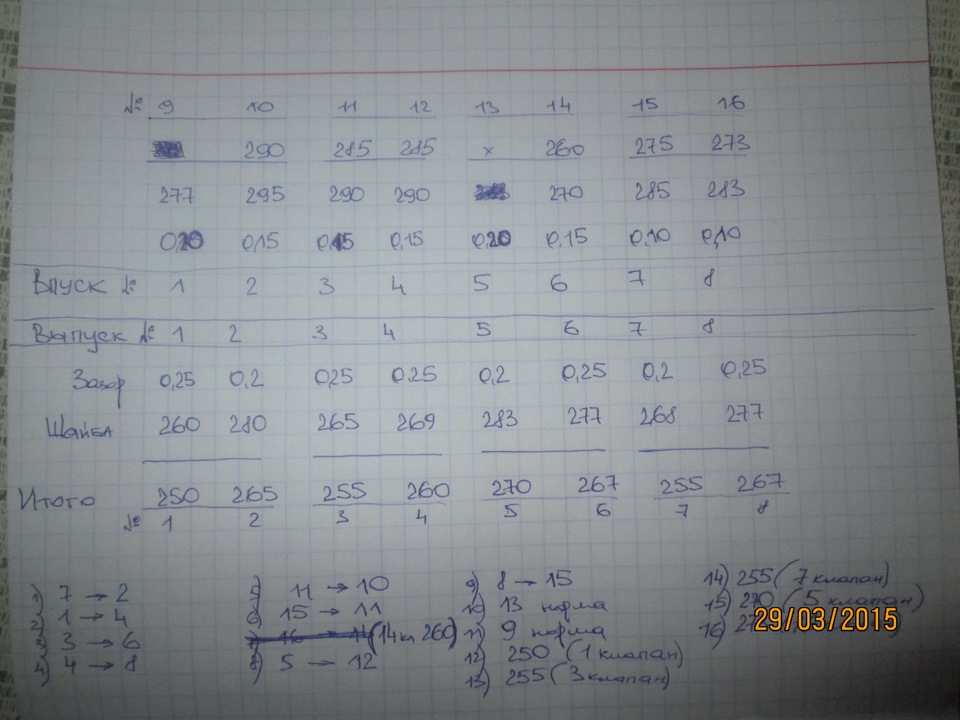 № 9 10 11 12 13 14 15 16
290 285 285 x 260 275 273
277 295 290 290 270 285 283
0,20 0,15 0,15 0,15 0,20 0,15 0,10 0,10
Впуск № 1 2 3 4 5 6 7 8
Выпуск № 1 2 3 4 5 6 7 8
Зазор 0,25 0,2 0,25 0,25 0,2 0,25 0,2 0,25
Шайба 260 280 265 269 283 277 268 277
Итого 250 265 255 260 270 267 255 267
№ 1 2 3 4 5 6 7 8
1) 7 → 2
2) 1 → 4
3) 3 → 6
4) 4 → 8
5) 11 → 10
6) 15 → 11
7) 16 → 14 (14 кл 260)
8) 5 → 12
9) 8 → 15
10) 13 норма
11) 9 норма
12) 250 (1 клапан)
13) 255 (3 клапан)
14) 255 (7 клапан)
15) 270 (5 клапан)
16)
29/03/2015